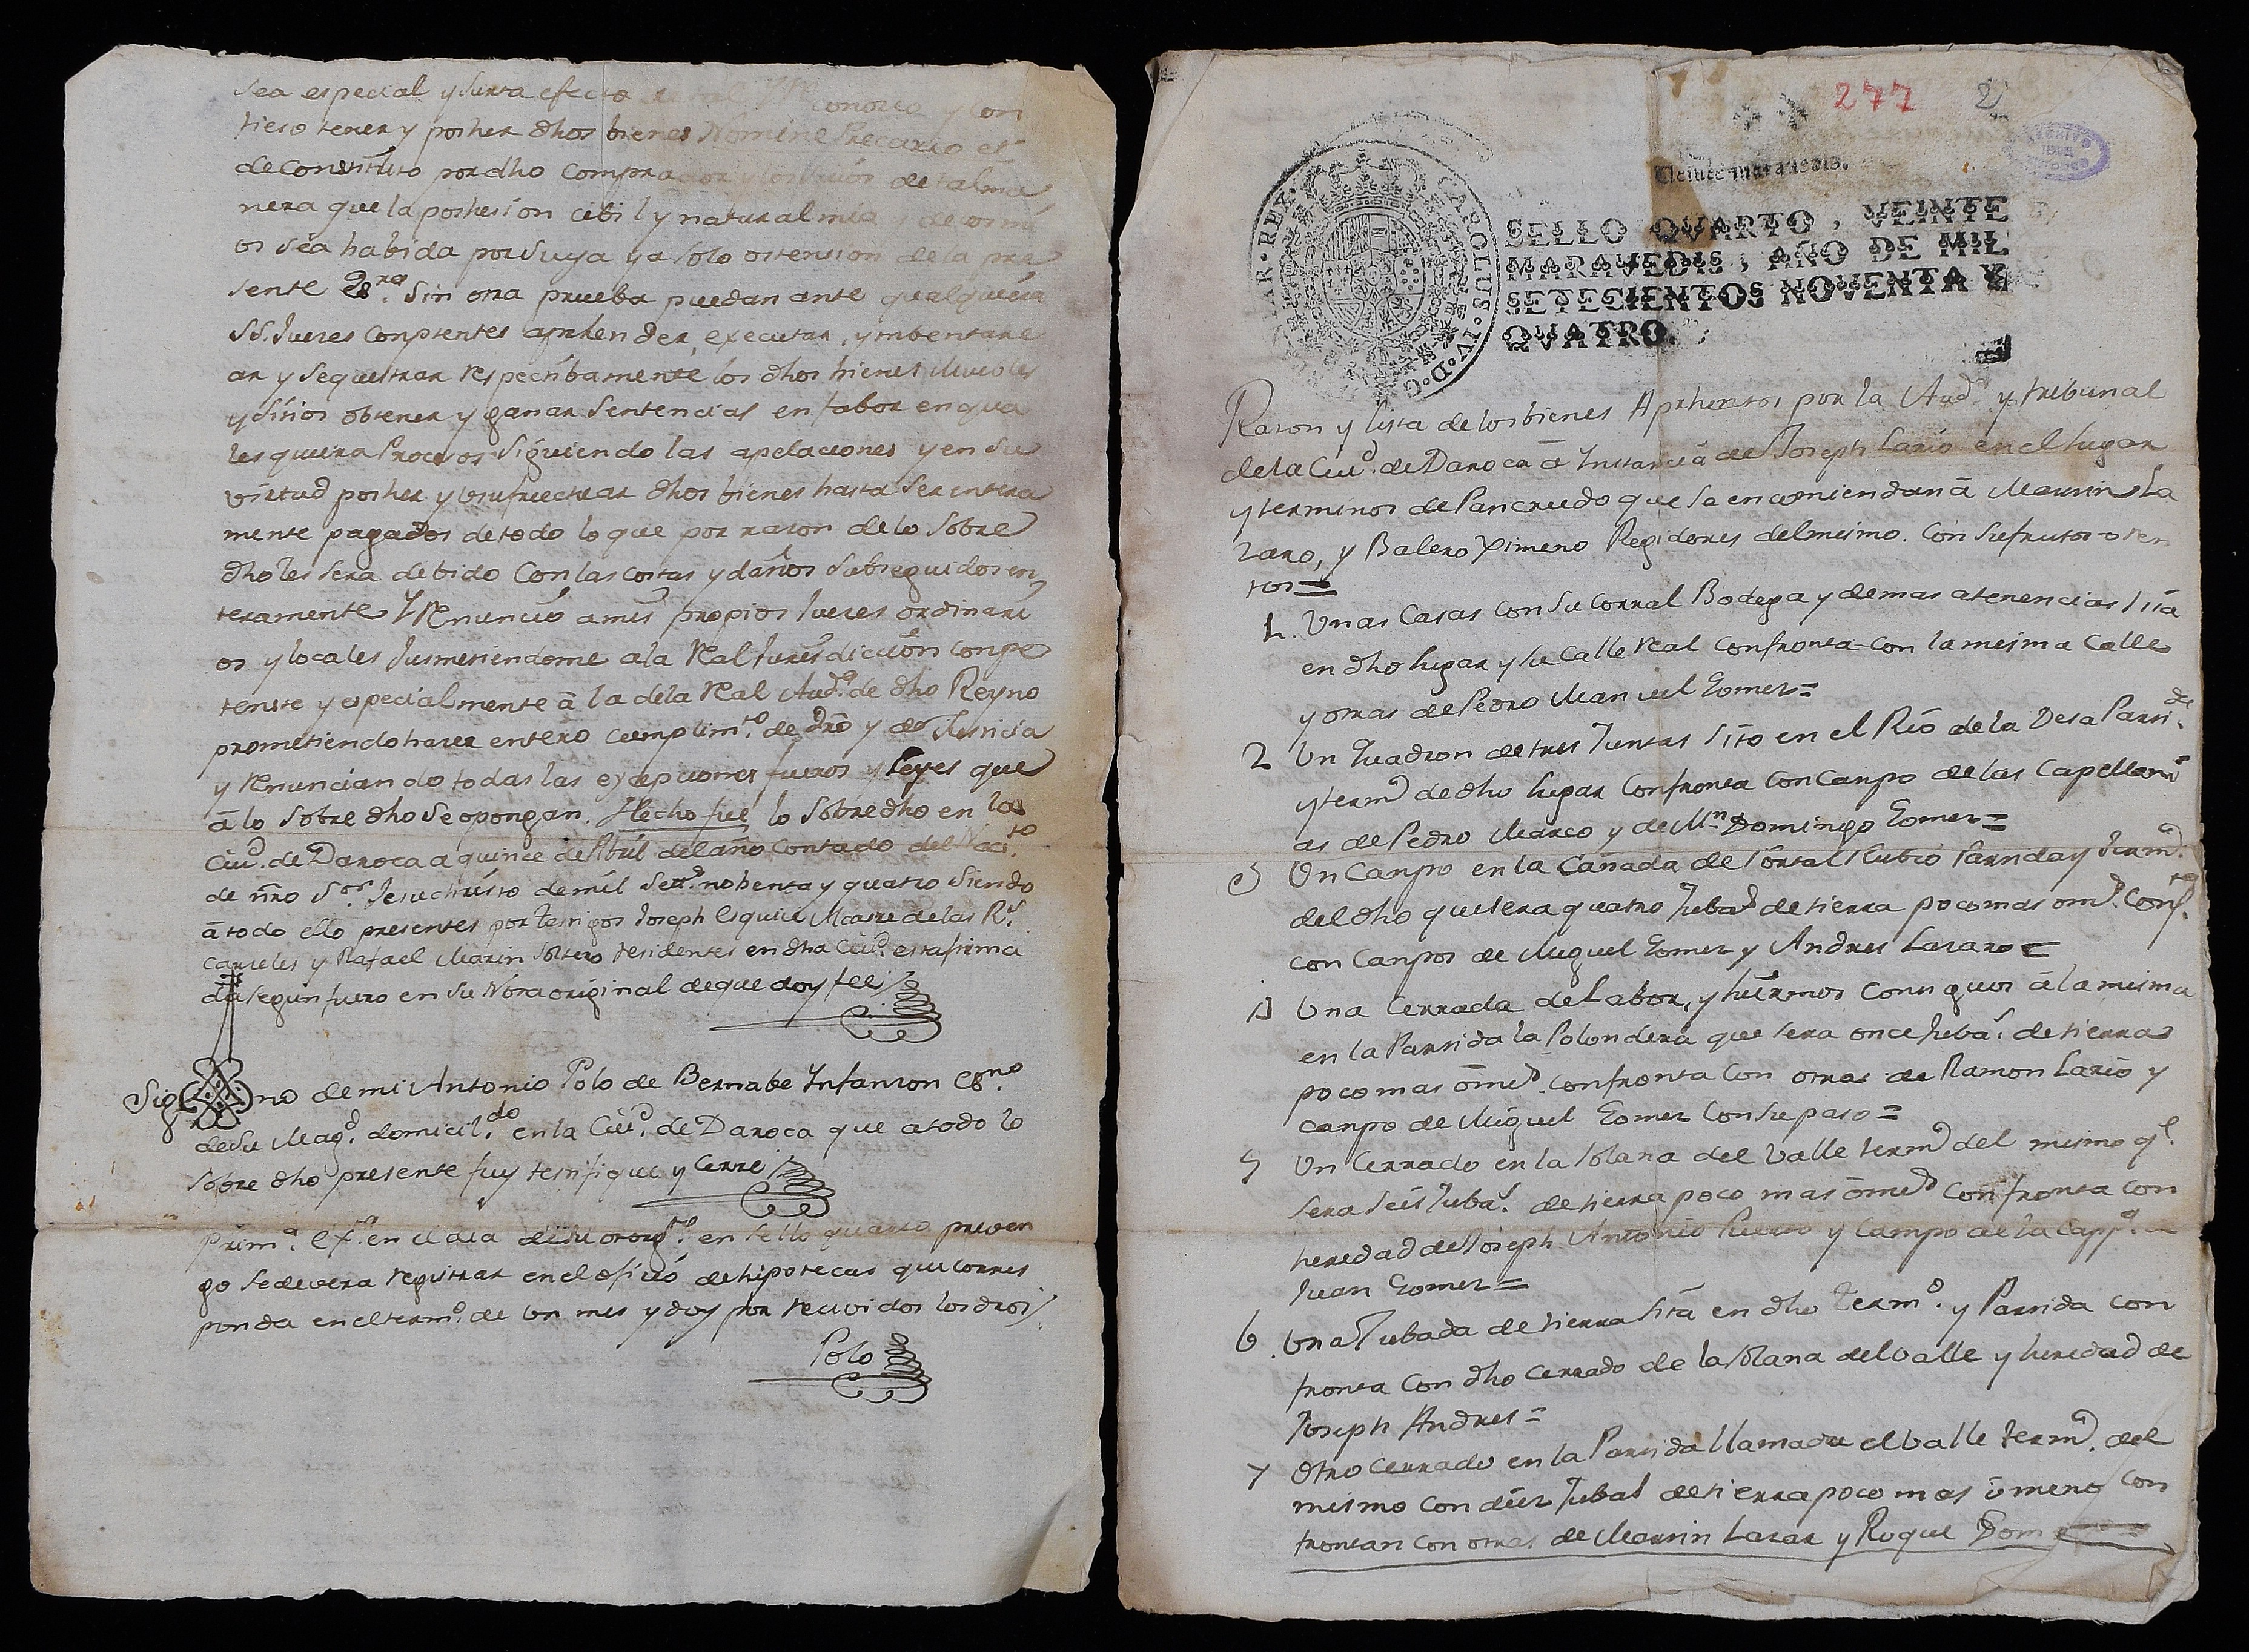 sea especial y surta efecto de tal conozco y con
fieso tener y posher dhos bienes Nomine Precario et
de Constituto por dho Comprador y los suios de tal ma
nera que la poshesion cibil y natural mia y de los mi
os sea habida por suya y a solo ostension de la pre
sente Esra. Sin otra prueba puedan ante qualquiera
SS. Jueces Conptentes aprhender, executar, ymbentare
ar y sequestrar respectibamente los dhos bienes Muebles
y sitios obtener y ganar Sentencias en fabor en qua
les quiera Procesos Siguiendo las apelaciones y en su
virtud posher y usufructuar dhos bienes hasta ser entera
mente pagados de todo lo que por razon de lo Sobre
dho les sera debido Con las costas y daños Subseguidos en
teramente Y Renuncio a mis propios Jueces ordinari
os y locales Jusmetiendome a la Real Jurisdiccion Conpe
tente y especialmente â la de la Real Auda. de dho Reyno
prometiendo hacer entero cumplimto. de Dro y de Justicia
y renunciando todas las excepciones fueros y Leyes que
â lo Sobre dho se opongan. Hecho fue lo Sobre dho en la
Ciud. de Daroca a quince de Abril del año Contado del Nacito.
de nro Sor. Jesuchristo de mil Setts. nobenta y quatro Siendo
â todo ello presentes por testigos Joseph Esquiu Alcaide de las Rs.
carceles y Rafael Marin Soltero residentes en dha Ciud. esta firma
da segun fuero en su Nota original de que doy fee
Sig no de mi Antonio Polo de Bernabe Infanzon Esno.
de Su Magd. domicildo. en la Ciud. de Daroca que a todo lo
Sobre dho presente fuy testifique y Cerre
Prima. Exta. en el dia de su otorgto. en sello quarto preven
go se devera registrar en el oficio de hipotecas que corres
ponda en el termo. de un mes y doy por recividos los dros
Polo
277 2
Veinte maravedis.
CAROLUS·IV·D·G· HISPANIAR·REX·
SELLO QVARTO, VEINTE
MARAVEDIS, AÑO DE MIL
SETECIENTOS NOVENTA Y
QVATRO.
Razon y lista de los bienes Aprhensos por la Auda. y tribunal
de la Ciud. de Daroca â Instancia de Joseph Lario en el lugar
y terminos de Pancrudo que se encomiendan â Martin La
zaro, y Balero Ximeno Regidores del mismo. Con su frutos o ren
tos=
1. Unas Casas con su corral Bodega y demas atenencias sita
en dho lugar y su Calle real Confronta con la mesma Calle
y otras de Pedro Manuel Gomez=
2 Un Quadron de tres Juntas Sito en el Rio de la Desa Partida.
y termo de dho lugar Confronta con Canpo de las Capellani
as de Pedro Marco y de Mn. Domingo Gomez=
3 Un Canpo en la Cañada de Portal Rubio Partida y termo.
del dho que sera quatro Jubads de tierra poco mas o md. Confta.
con Canpos de Miguel Gomez y Andres Lazaro=
4 Una Cerrada de Labor, y hiermos Contiguos â la misma
en la Partida la Polondera que sera once Jubas. de tierra
poco mas ô meo. confronta con otras de Ramon Lario y
canpo de Miguel Gomez con su paso=
5 Un Cerrado en la Solana del Valle termo del mismo qe.
sera seis Jubas. de tierra poco mas ô meo confronta con
heredad de Joseph Antonio Puerto y Campo de la Cappa. de
Juan Gomez=
6. Una Jubada de tierra sita en dho termo. y Partida con
fronta con dho Cerrado de la Solana del Valle y heredad de
Joseph Andres=
7 Otro Cerrado en la Partida llamada el Valle termo. del
mismo con diez Jubas de tierra poco mas ô meno con
frontan con otras de Martin Lazar y Roque Gom